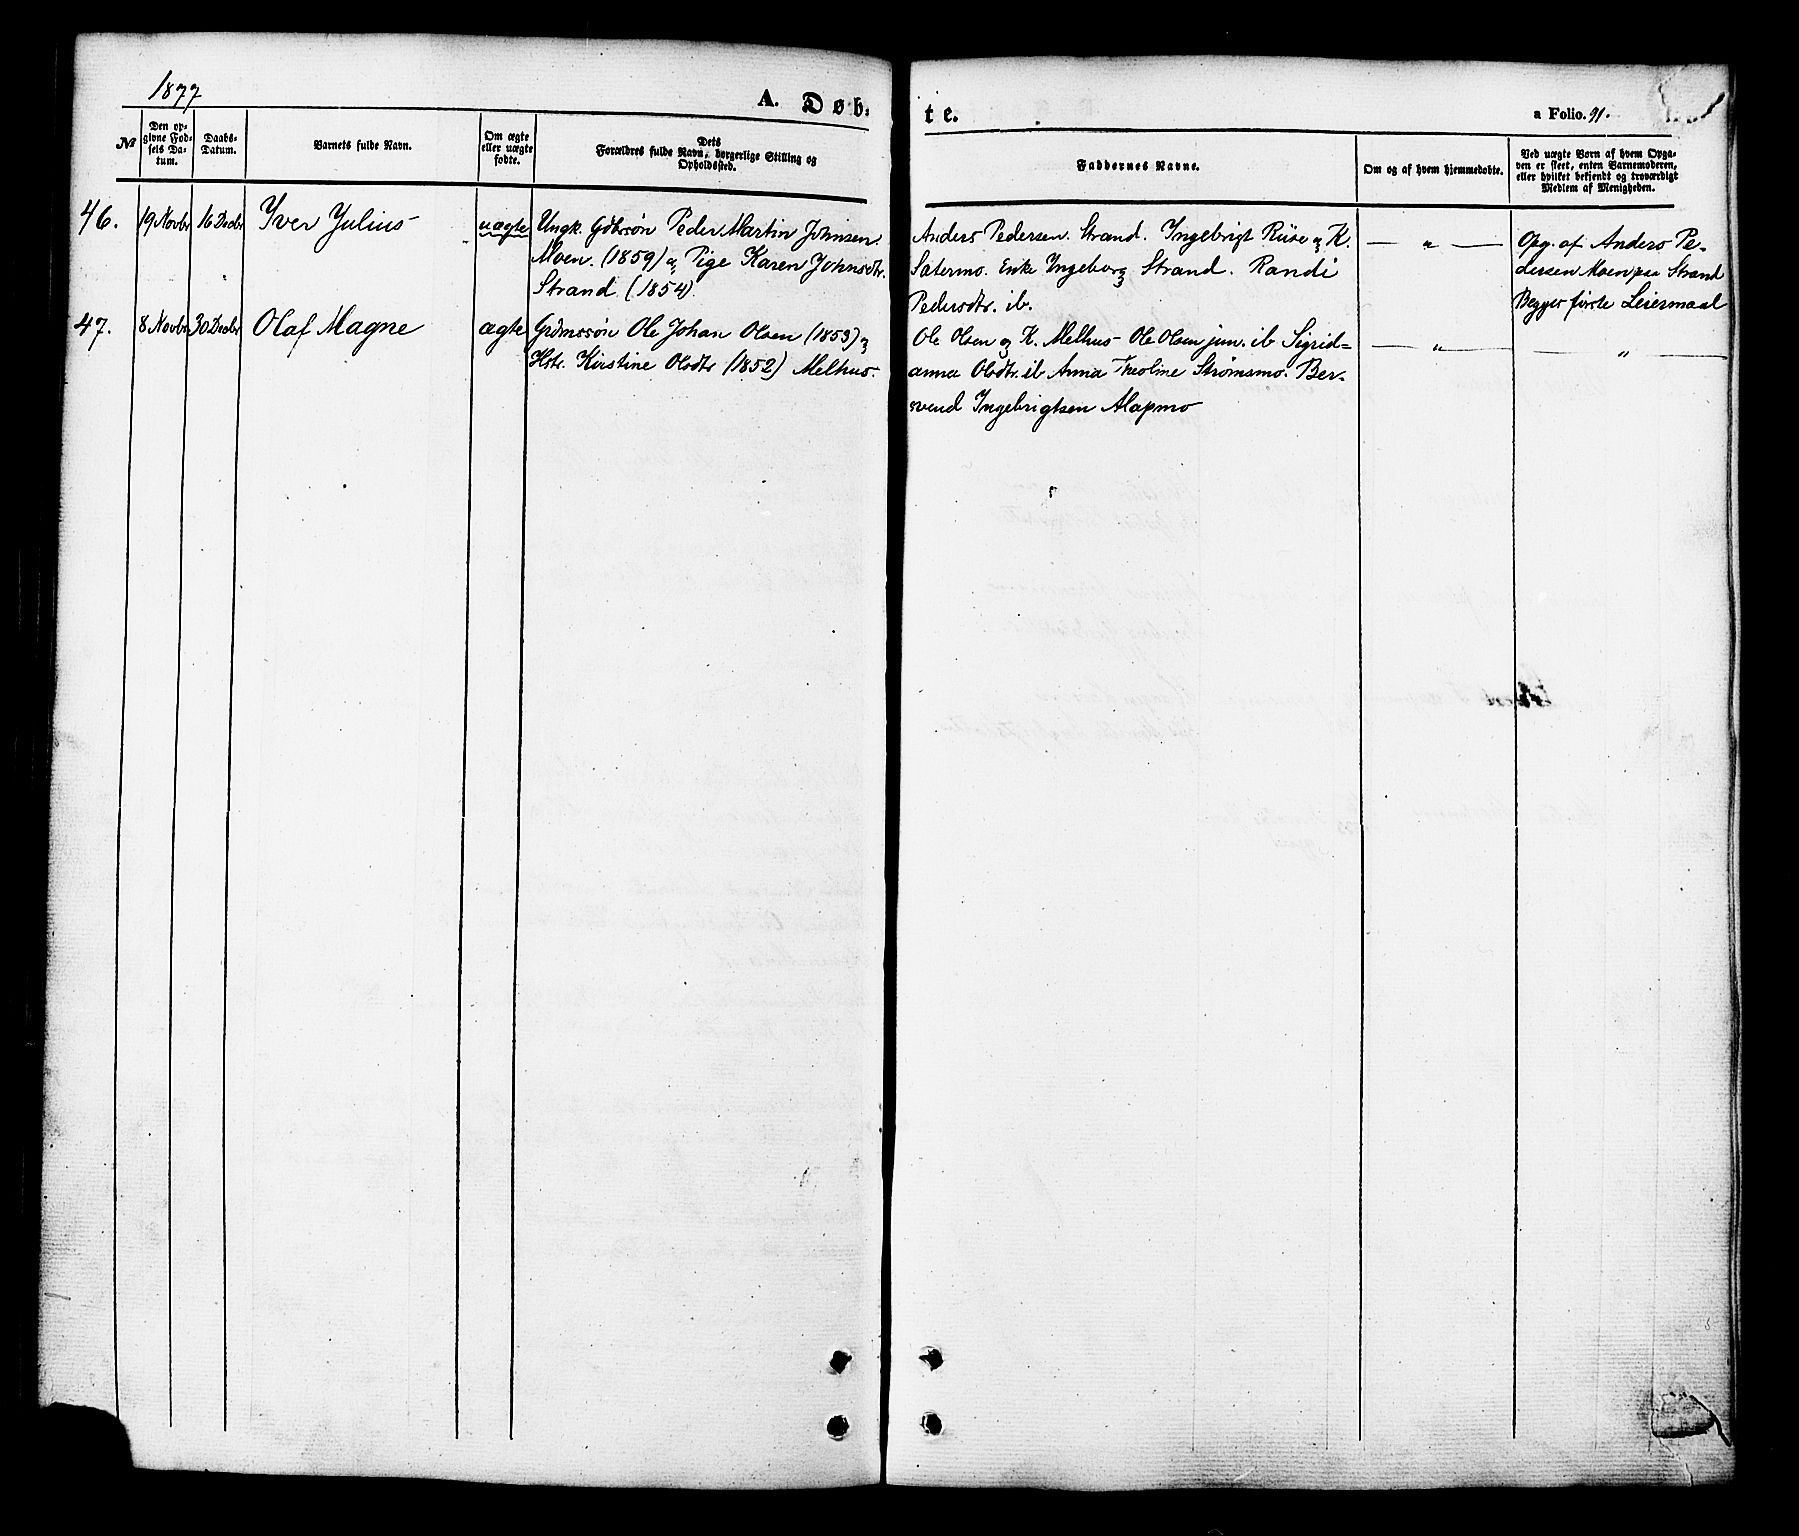 1877
A. Døb-
te.
a Folio. 91.
№
Den op-
givne Fød-
sels Da-
tum.
Daabs-
Datum.
Barnets fulde Navn.
Om ægte
eller uægte
fødte.
Dets
Forældres fulde Navn, borgerlige Stilling og
Opholdssted.
Faddernes Navne.
Om og af hvem hjemmedøbte.
Ved uægte Børn af hvem Opga-
ven er skeet, enten Barnemoderen,
eller hvilket bekjendt og troværdigt
Medlem af Menigheden.
46. 19 Novbr 16 Decbr Yver Julius uægte
Ungk. Gbrsøn Peder Martin Johnsen
Moen. (1859) og Pige Karen Johnsdtr.
Strand. (1854).
Anders Pedersen. Strand. Ingebrigt Riise og K.
Satermo. Enke Ingeborg Strand. Randi
Pedersdtr. ib.
— „ —
Opg. af Anders Pe-
dersen Moen paa Strand
Begges første Leiermaal
47. 8 Novbr 30 Decbr Olaf Magne ægte
Grdmssøn Ole Johan Olsen (1853) og
Hstr. Kirstine Olsdtr (1852) Melhus.
Ole Olsen og K. Melhus- Ole Olsen jun. ib Sigrid-
anna Olsdtr. ib Anna Theoline Strømsmo. Ber-
svend Ingebrigtsen Alapmo
— „ —
— „ —